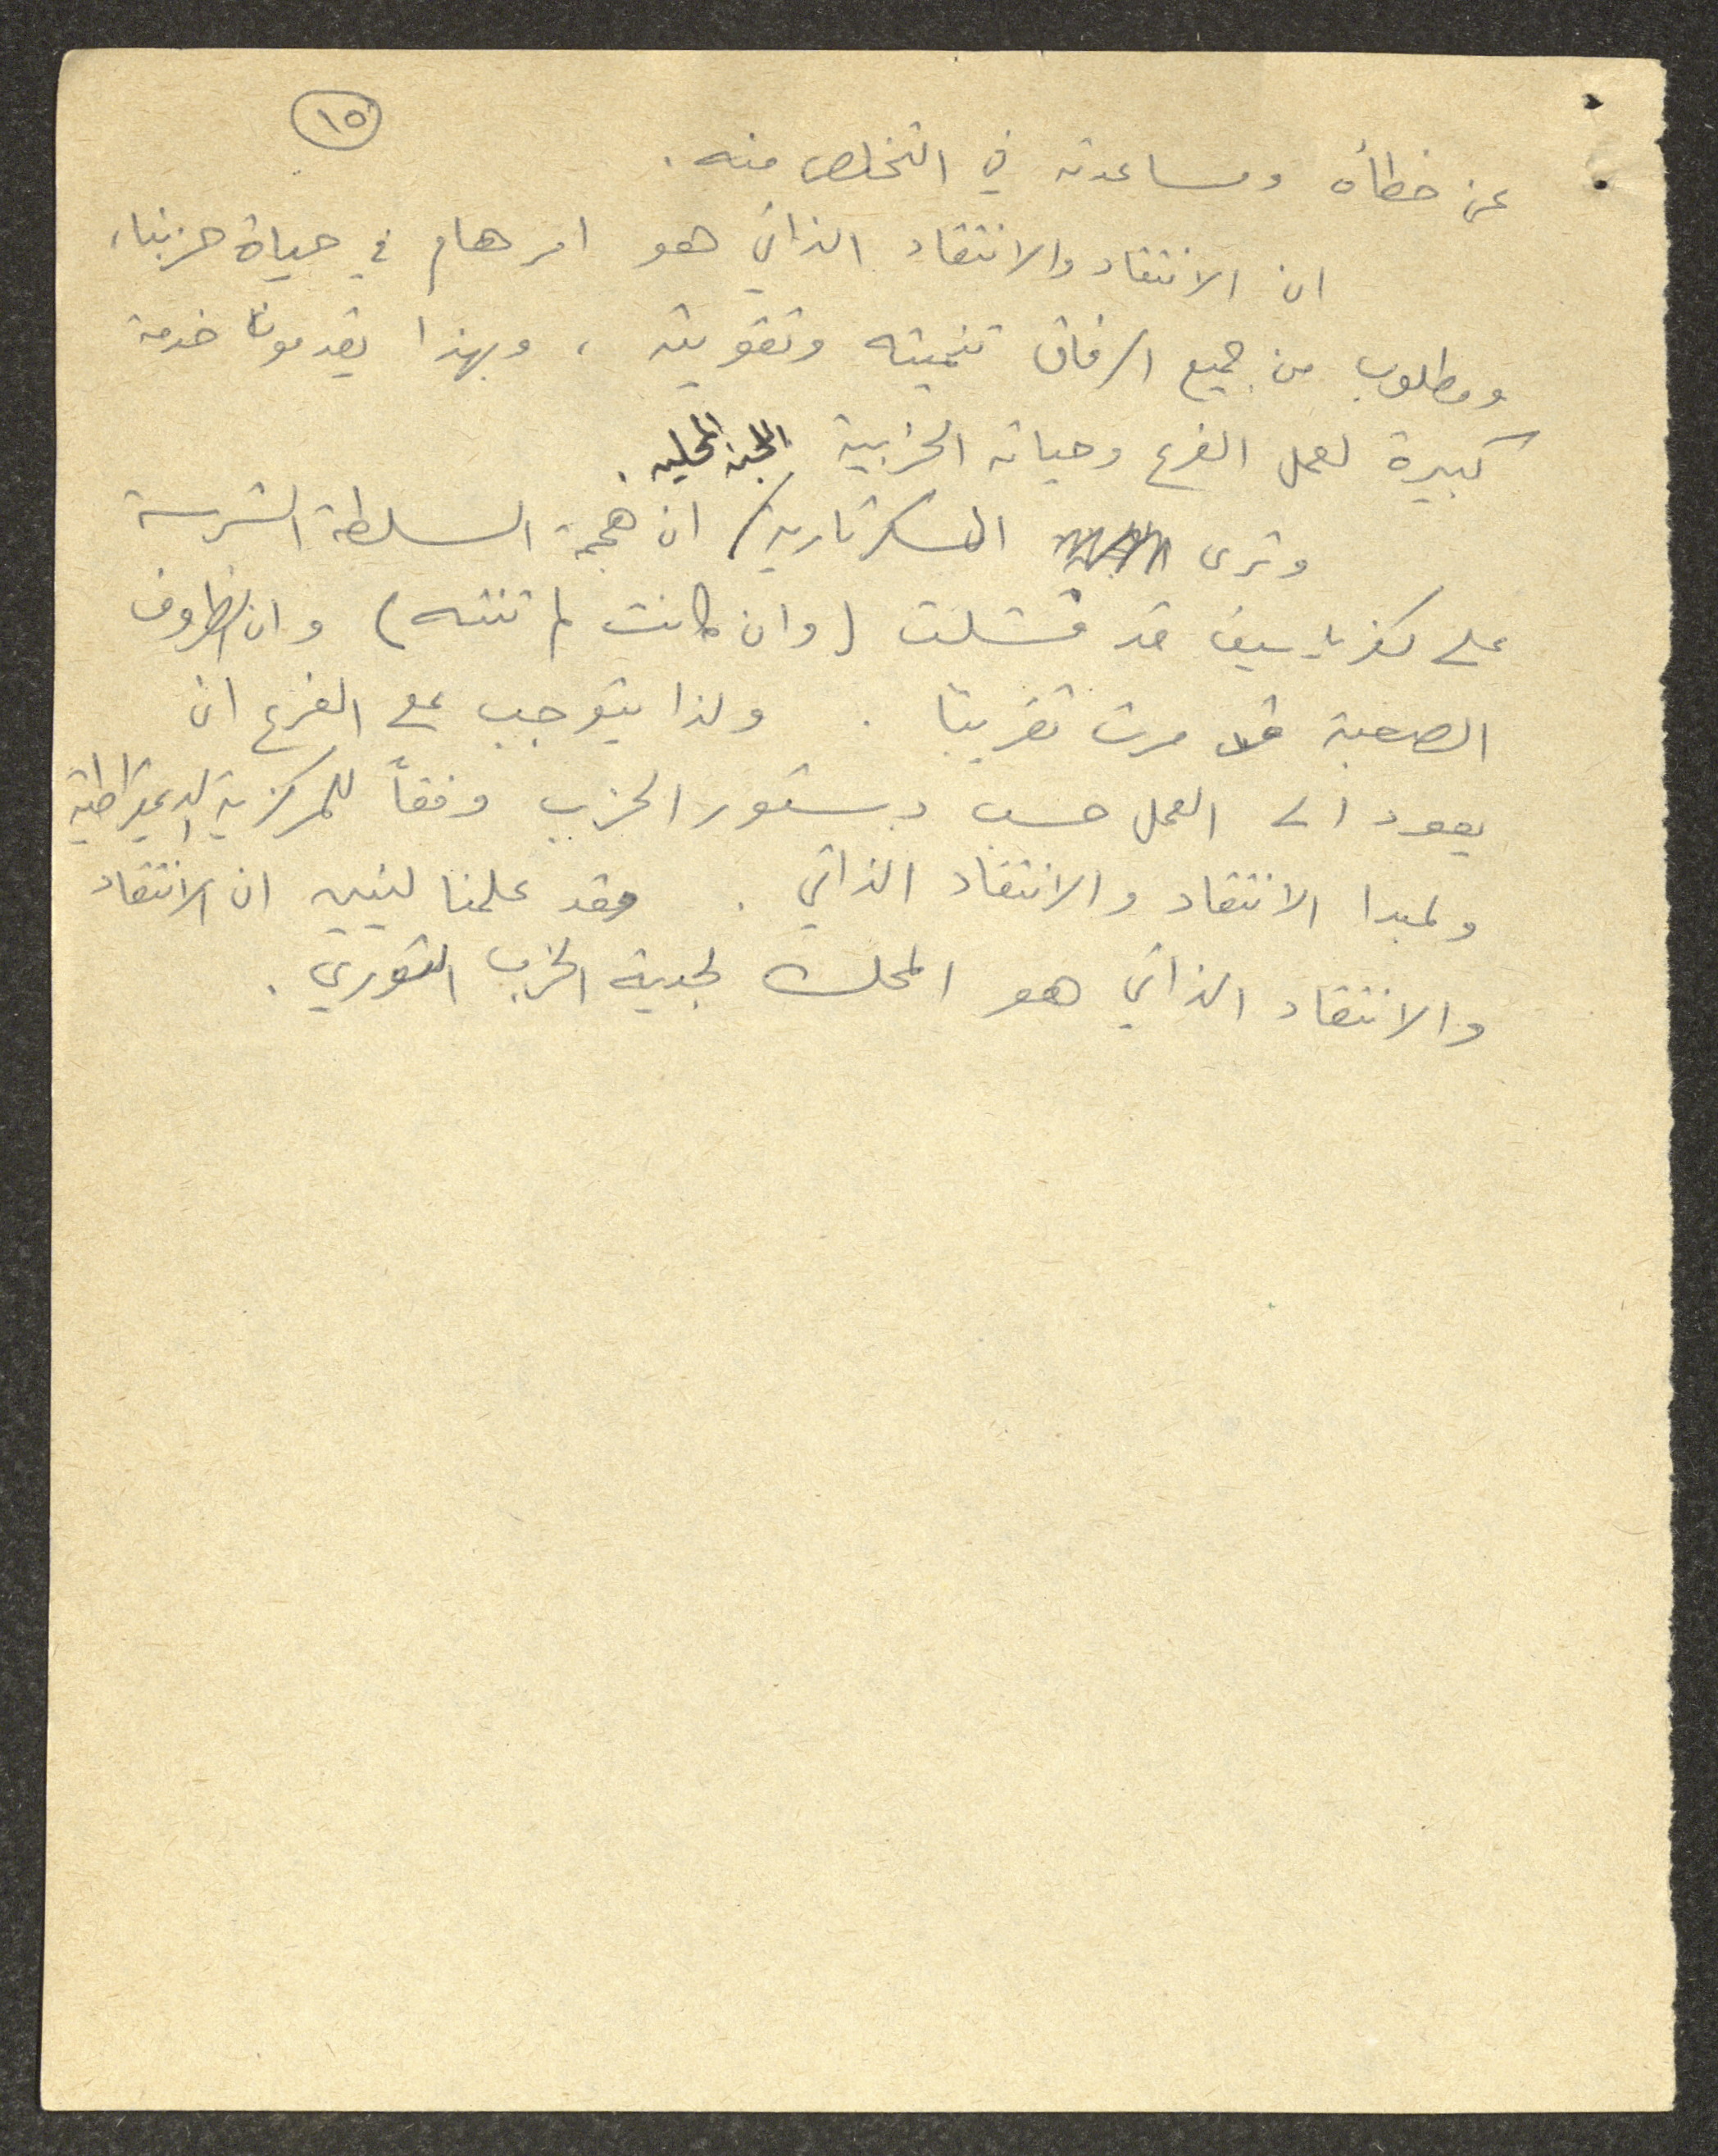 ١٥
عن خطأه ومساعدته في التخلص منه .
ان الانتقاد والانتقاد الذاتي هو امر هام في حياة حزبنا ،
ومطلوب من جميع الرفاق تنميته وتقويته ، وبهذا يقدمون خدمة
كبيرة لعمل الفرع وحياته الحزبية .
اللجنة المحليه
وترى السكرتارية / ان هجمة السلطة الشرسة
على كفر ياسيف قد فشلت ( وان كانت لم تنته ) وان الظروف
الصعبة قد مرت تقريبا . ولذا يتوجب على الفرع ان
يعود الى العمل حسب دستور الحزب وفقاً للمركزية الديمقراطية
ولمبدا الانتقاد والانتقاد الذاتي . وقد علمنا لينين ان الانتقاد
والانتقاد الذاتي هو المحك لجدية الحزب الثوري .